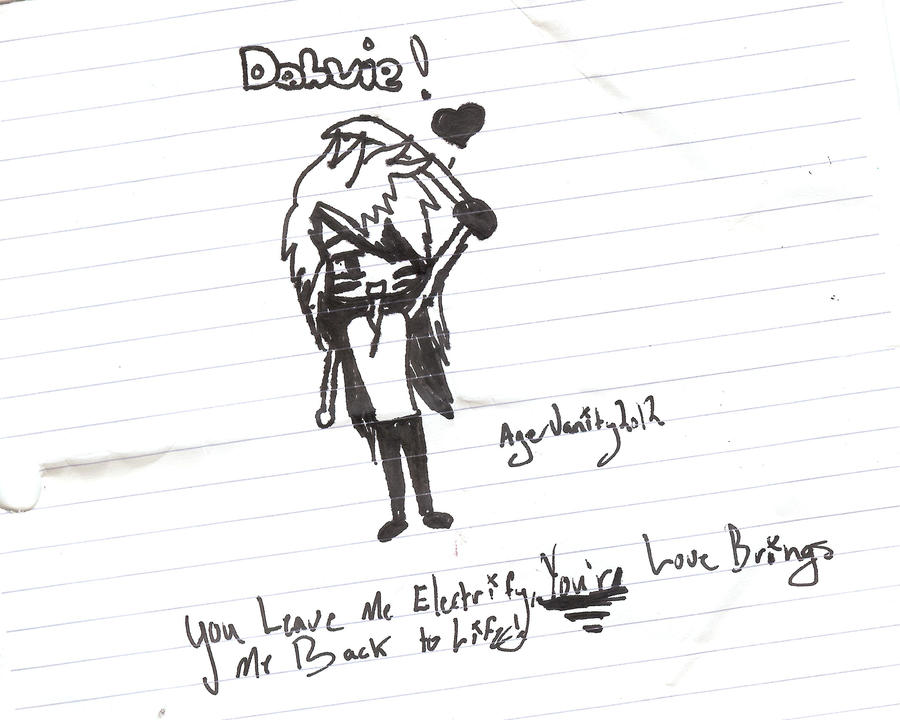 Dahvie!
AgerVanity2012
You Leave Me Electrify, You're Love Brings
Me Back to Life!